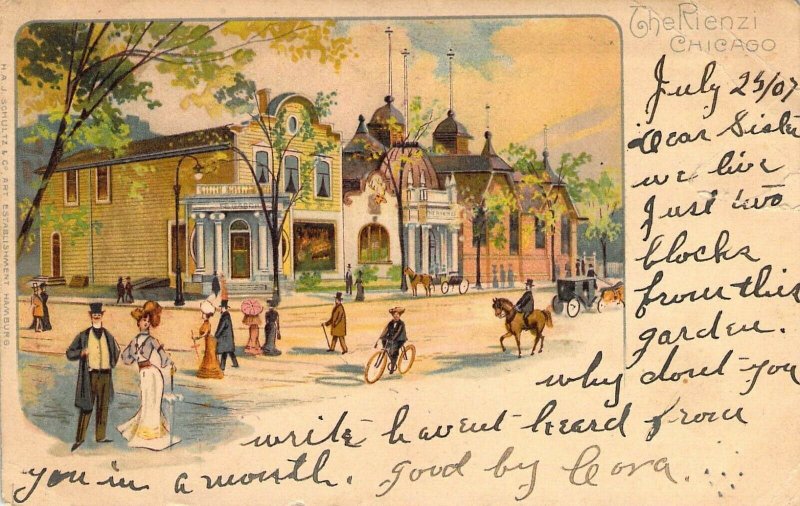 The Rienzi
CHICAGO
July 25/07
Dear Sister
we live
Just two
blocks
from this
garden.
why dont you
write havent heard from
you in a month. good by Cora....
H.A.J. SCHULTZ & CO. ART. ESTABLISHMENT HAMBURG